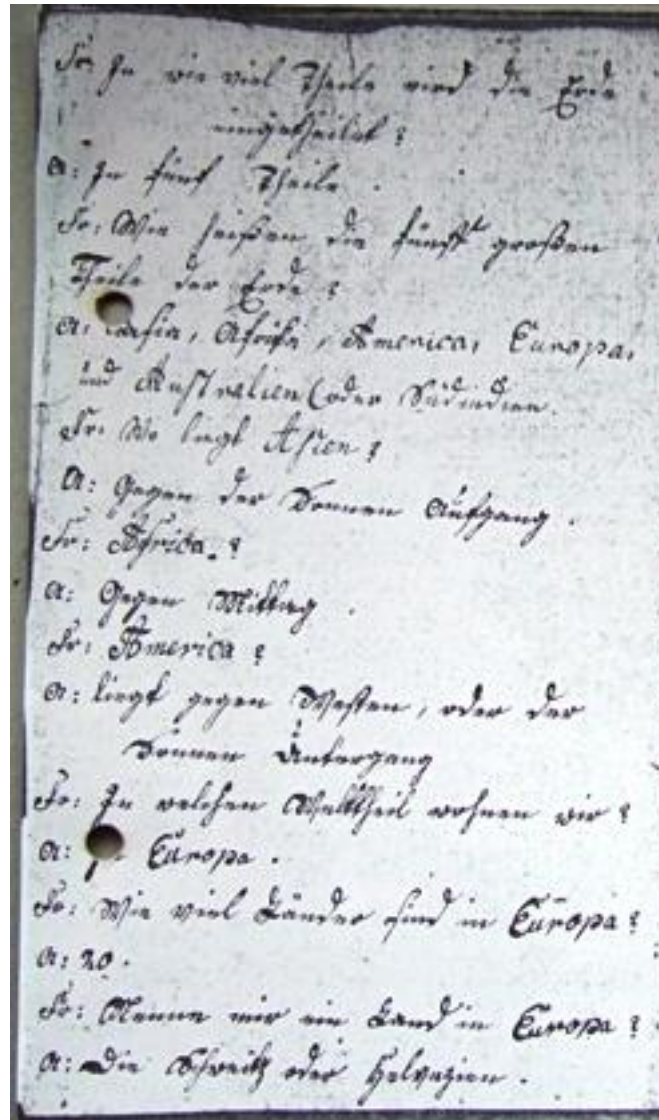 Fr: In wie viel Theile wird die Erde
eingetheilet?
A: In fünf Theile.
Fr: Wie heißen die fünff großen
Theile der Erde?
A: Asia, Africa, America, Europa,
und Australien (oder Südindien.
Fr: Wo liegt Asien?
A: Gegen der Sonnen Aufgang.
Fr: Africa.?
A: Gegen Mittag.
Fr: America?
A: liegt gegen Westen, oder der
Sonnen Untergang
Fr: In welchen Weltttheil wohnen wir?
A: In Europa.
Fr: Wie viel Länder sind in Europa?
A: 20.
Fr: Nenne mir ein Land in Europa?
A: Die Schweitz oder Helvezien.